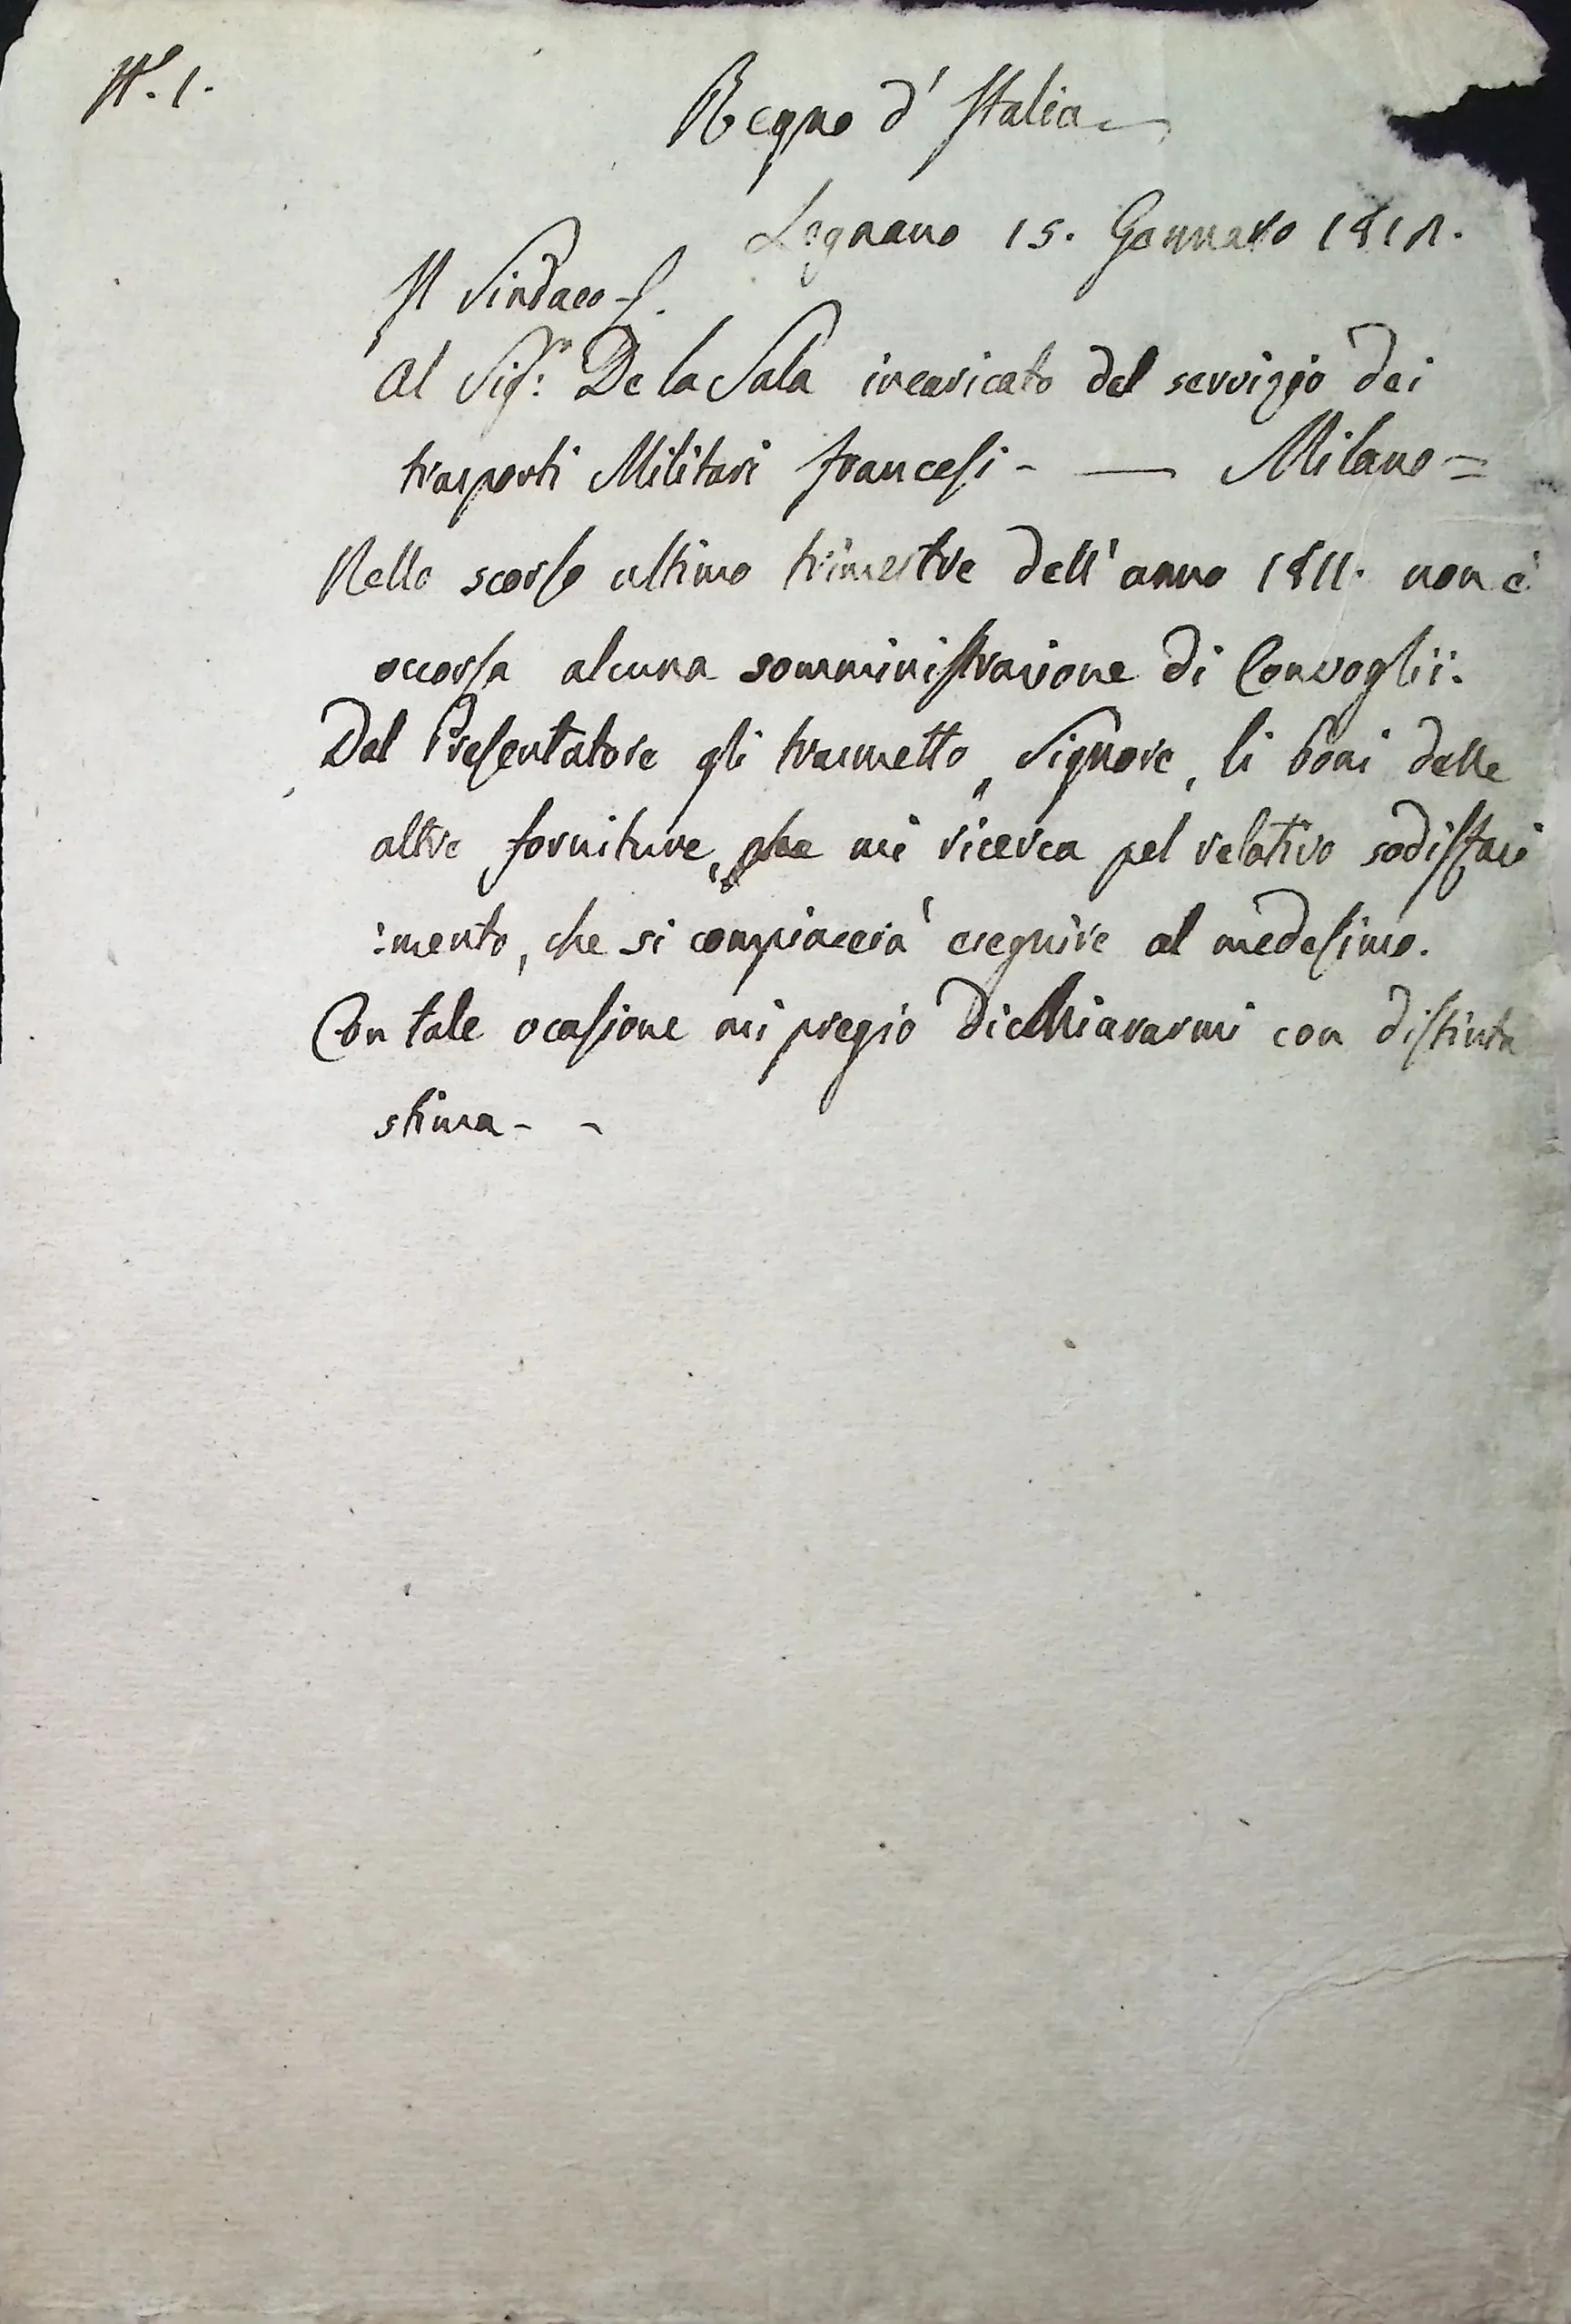 N.° 1.
Regno d' Italia
Legnano 15. Gennaro 1812.
Il Sindaco
Al Sig.r De la Sala incaricato del servizio dei
trasporti Militari francesi - — Milano =
Nello scorso ultimo trimestre dell' anno 1811. non è
occorsa alcuna somministrazione di Convoglii.
Dal Presentatore gli trasmetto, Signore, li boni delle
altre forniture, che mi ricerca pel relativo sodisfaci
:mento, che si compiacerà eseguire al medesimo.
Con tale ocasione mi pregio dichiararmi con distinta
stima - -